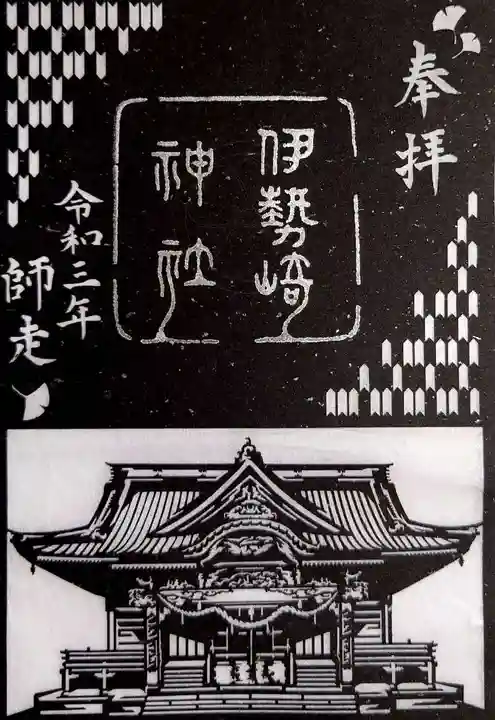 奉拝
伊勢崎
神社
令和三年
師走